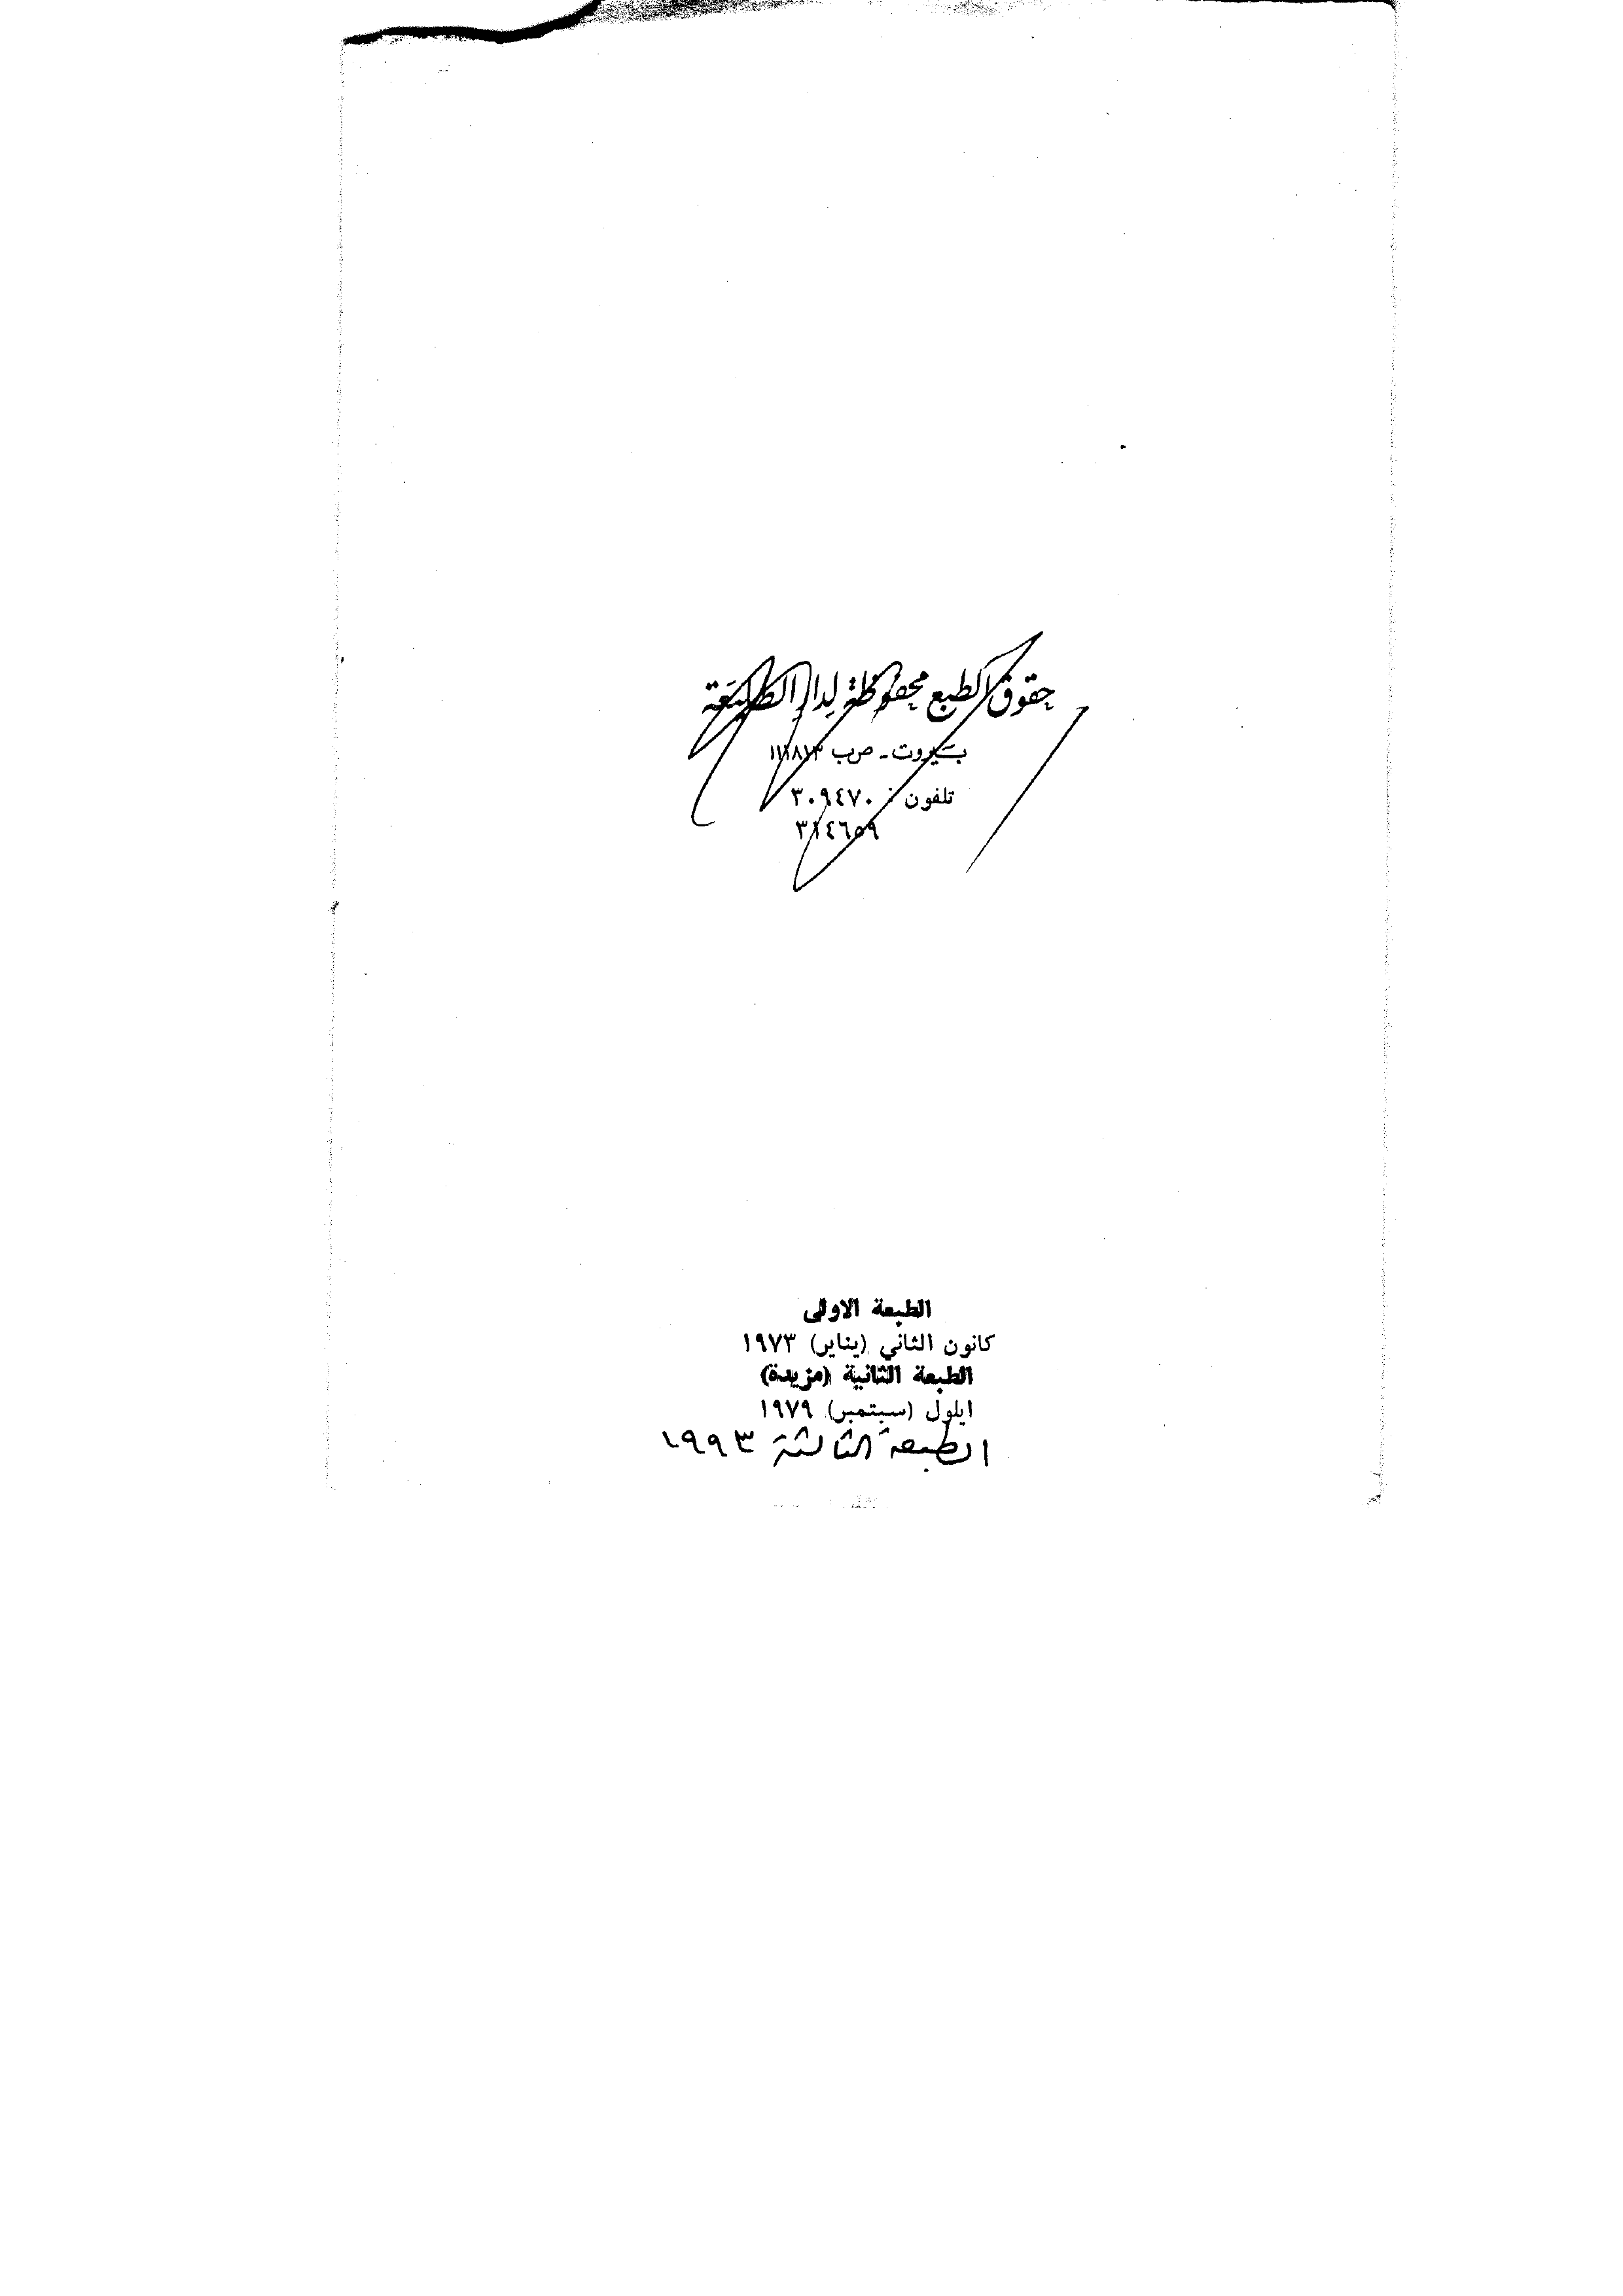 حقوق الطبع محفوظة لدار الطليعة
بيروت - ص.ب ١١١٨١٣
تلفون : ٣٠٩٤٧٠
٣١٤٦٥٩
الطبعة الاولى
كانون الثاني (يناير) ١٩٧٣
الطبعة الثانية (مزيدة)
ايلول (سبتمبر) ١٩٧٩
الطبعة الثالثة ١٩٩٣